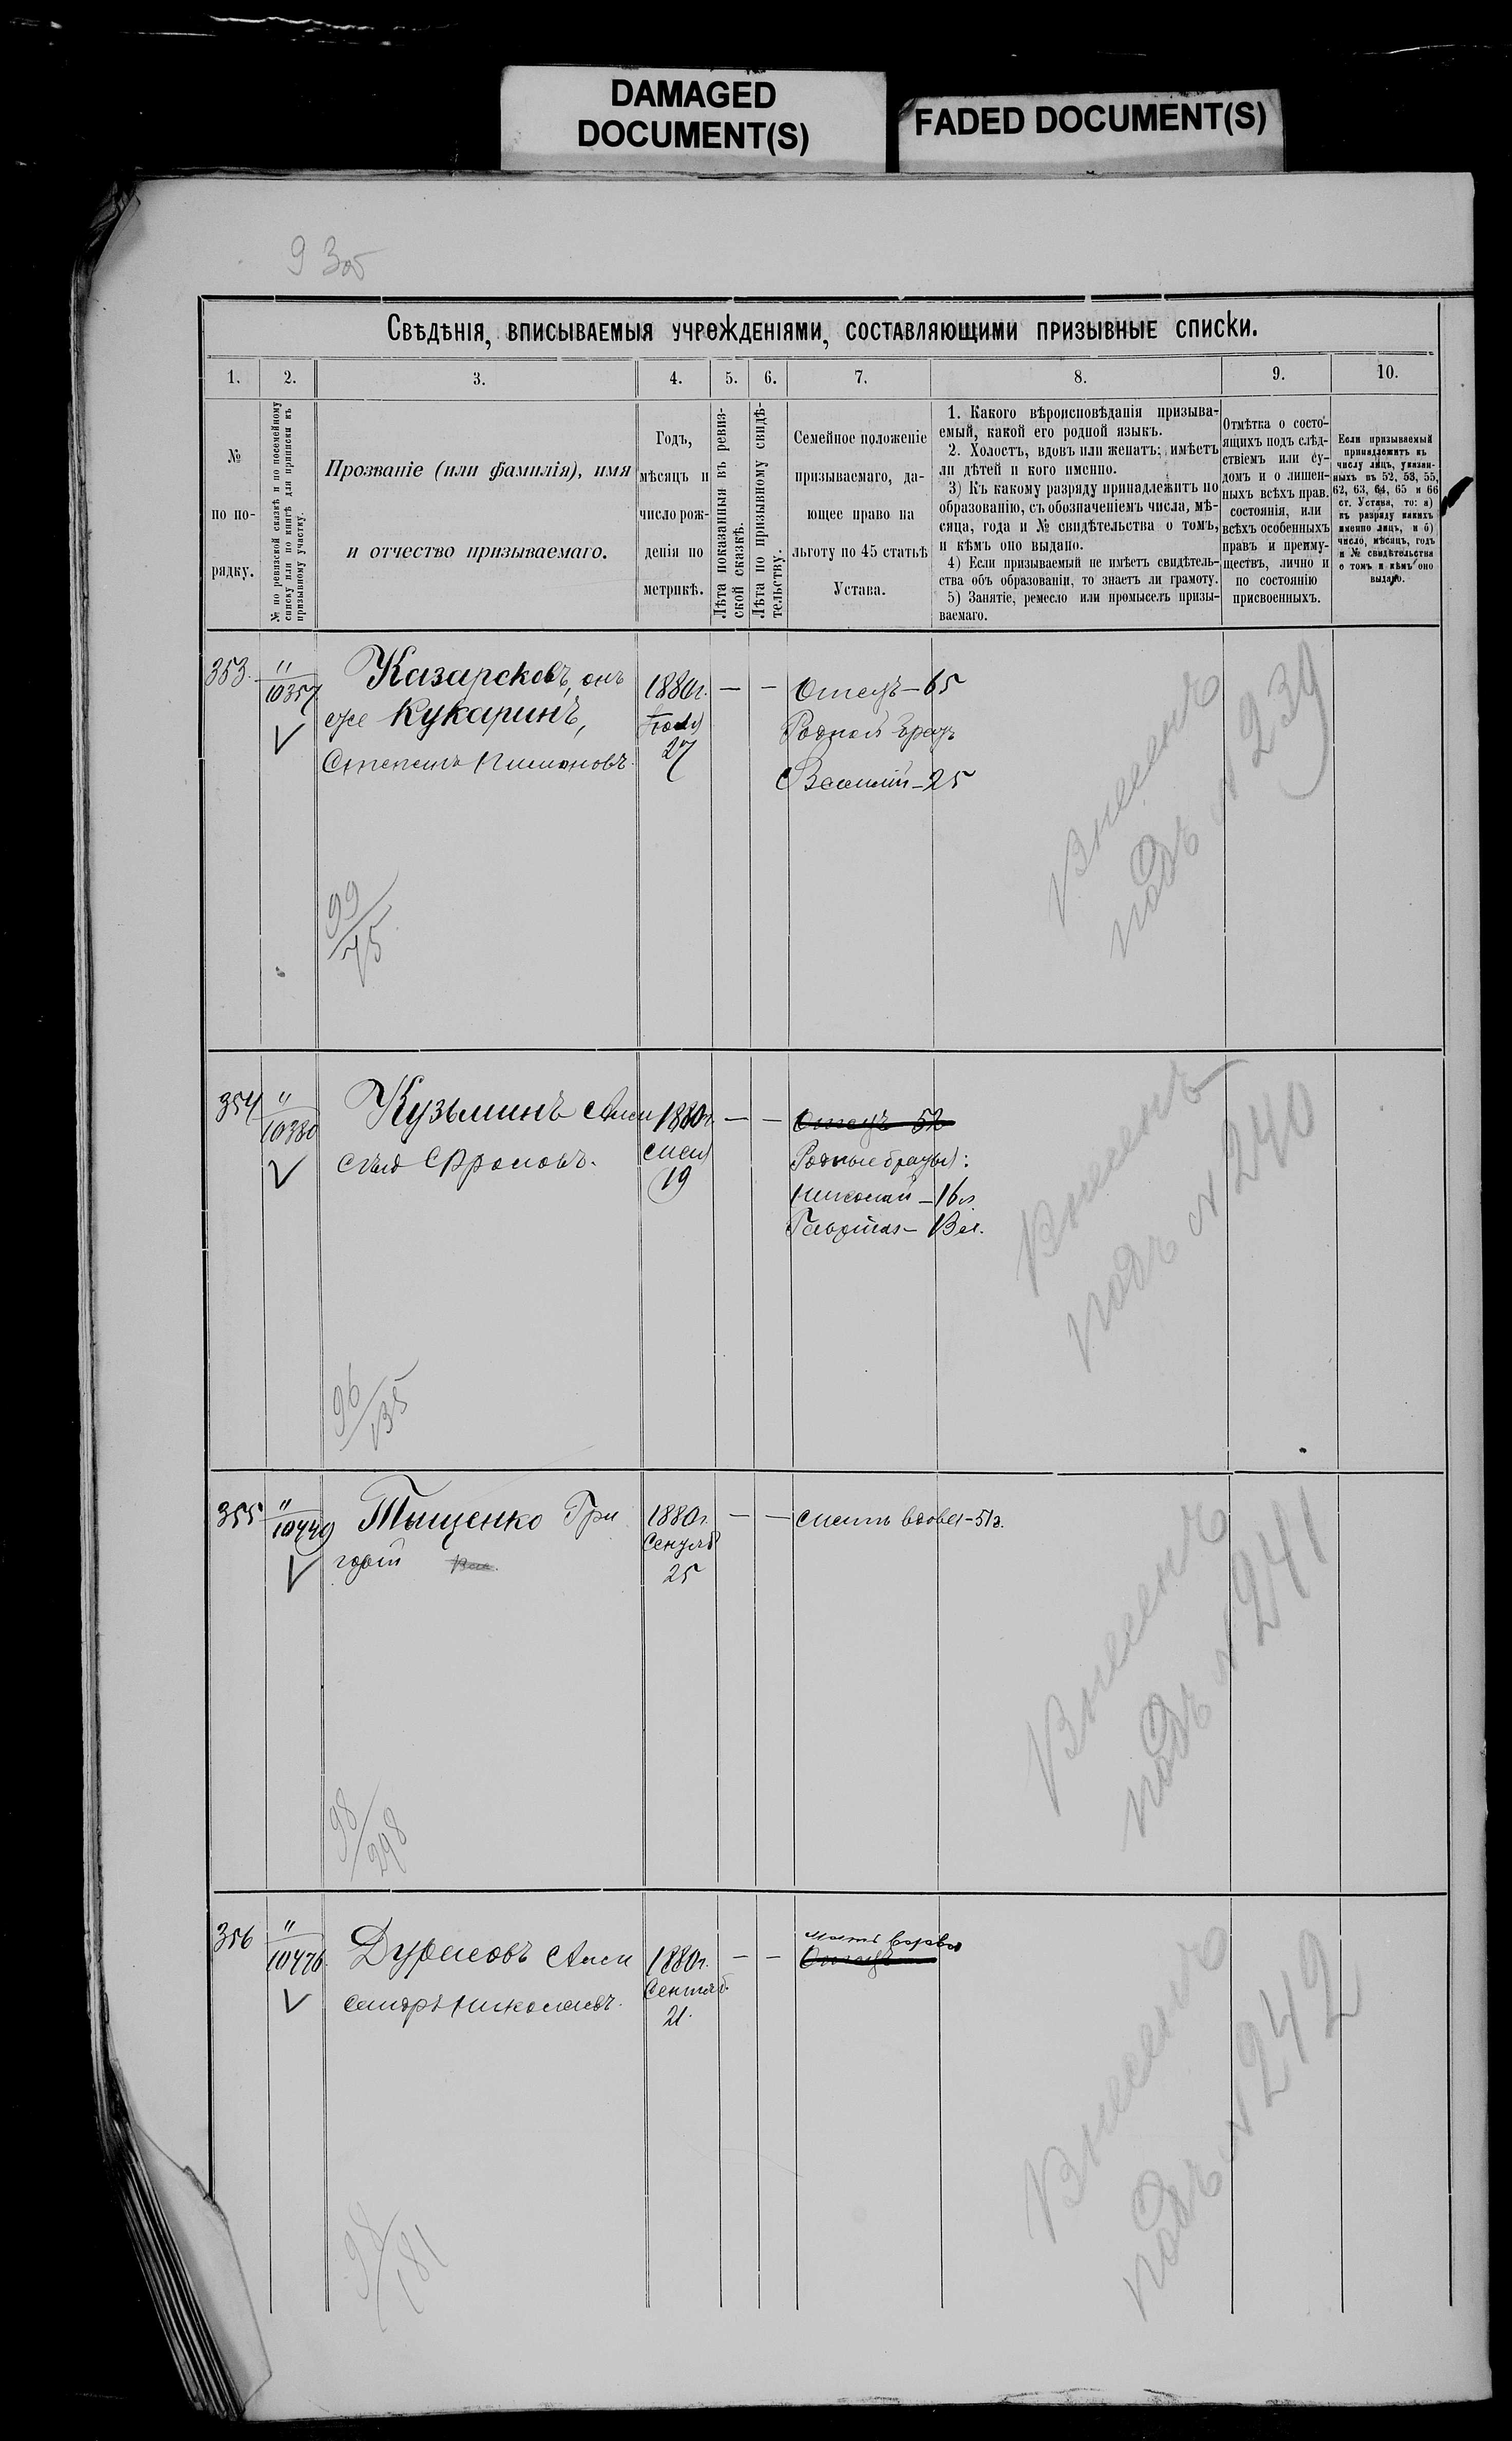 DAMAGED
DOCUMENT(S)
FADED DOCUMENT(S)
9 Зоб
Свѣдѣнія, вписываемыя учрежденіями, составляющими призывные списки.
1. 2. 3. 4. 5. 6. 7. 8. 9. 10.
№
по по-
рядку.
№ по ревизской сказкѣ и по посемейному
списку или по книгѣ для приписки къ
призывному участку.
Прозваніе (или фамилія), имя
и отчество призываемаго.
Годъ,
мѣсяцъ и
число рож-
денія по
метрикѣ.
Лѣта показанныя въ ревиз-
ской сказкѣ.
Лѣта по призывному свидѣ-
тельству.
Семейное положеніе
призываемаго, да-
ющее право на
льготу по 45 статьѣ
Устава.
1. Какого вѣроисповѣданія призыва-
емый, какой его родной языкъ.
2. Холостъ, вдовъ или женатъ; имѣетъ
ли дѣтей и кого именно.
3) Къ какому разряду принадлежитъ по
образованію, съ обозначеніемъ числа, мѣ-
сяца, года и № свидѣтельства о томъ,
и кѣмъ оно выдано.
4) Если призываемый не имѣетъ свидѣтель-
ства объ образованіи, то знаетъ ли грамоту.
5) Занятіе, ремесло или промыселъ призы-
ваемаго.
Отмѣтка о состо-
ящихъ подъ слѣд-
ствіемъ или су-
домъ и о лишен-
ныхъ всѣхъ прав.
состоянія, или
всѣхъ особенныхъ
правъ и преиму-
ществъ, лично и
по состоянію
присвоенныхъ.
Если призываемый
принадлежитъ къ
числу лицъ, указан-
ныхъ въ 52, 53, 55,
62, 63, 64, 65 и 66
ст. Устава, то: а)
къ разряду какихъ
именно лицъ, и б)
число, мѣсяцъ, годъ
и № свидѣтельства
о томъ и кѣмъ оно
выдано.
353. "
10357.
Казарсковъ, онъ
же Кукаринъ,
Степанъ
1880г.
27
— —
Отецъ — 65
Родной братъ
Василій — 25
Внесенъ
подъ № 239
99/75
354 "
10380
Кузьминъ Алек
сѣй
1880г.
19
— —
Отецъ 52
Родные братья:
Николай — 16л.
— 13л.
Внесенъ
подъ № 240
96/135
355 "
10449
Тыщенко Гри
горій
1880г.
25
— —
мать вдова — 51г.
Внесенъ
подъ № 241
98/298
356 "
10476.
Дурасовъ Алек
сандръ Николаевъ.
1880г.
Сентяб.
21.
— —
мать вдова
Отецъ
Внесенъ
подъ № 242
98/181